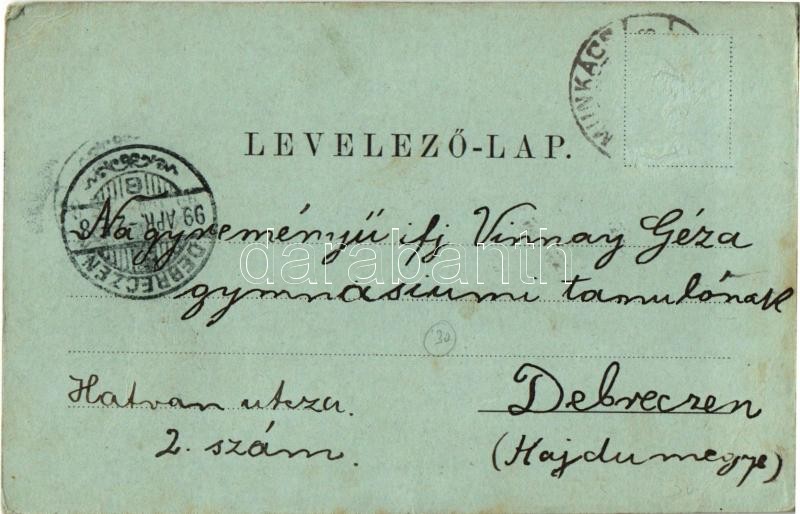 MUNKÁCS
LEVELEZŐ-LAP.
DEBRECZEN
99 APR.
8
B
Nagyreményü ifj Vinnay Géza
darabanth
gymnasiumi tanulónak
30
Hatvan utsza.
Debreczen
2. szám.
(Hajdumegye)